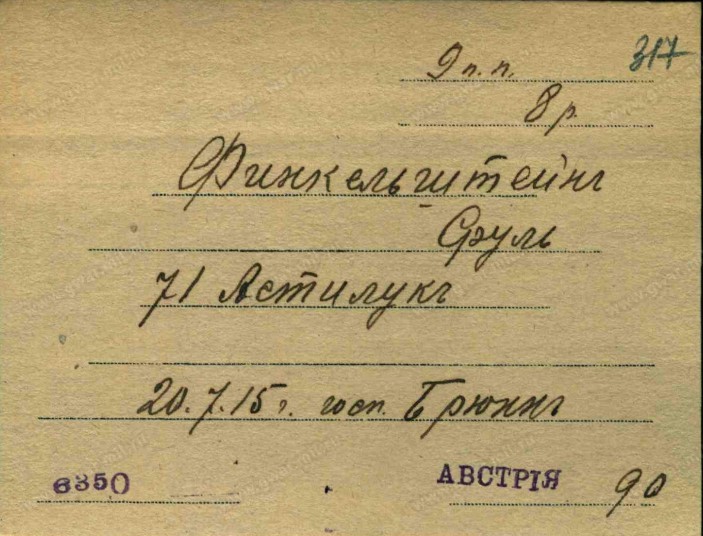 317
9 п. п.
8 р.
Финкельштейнъ
Сруль
71 Астилукъ
20.7.15 г. госп. Брюннъ
6350 АВСТРІЯ 90